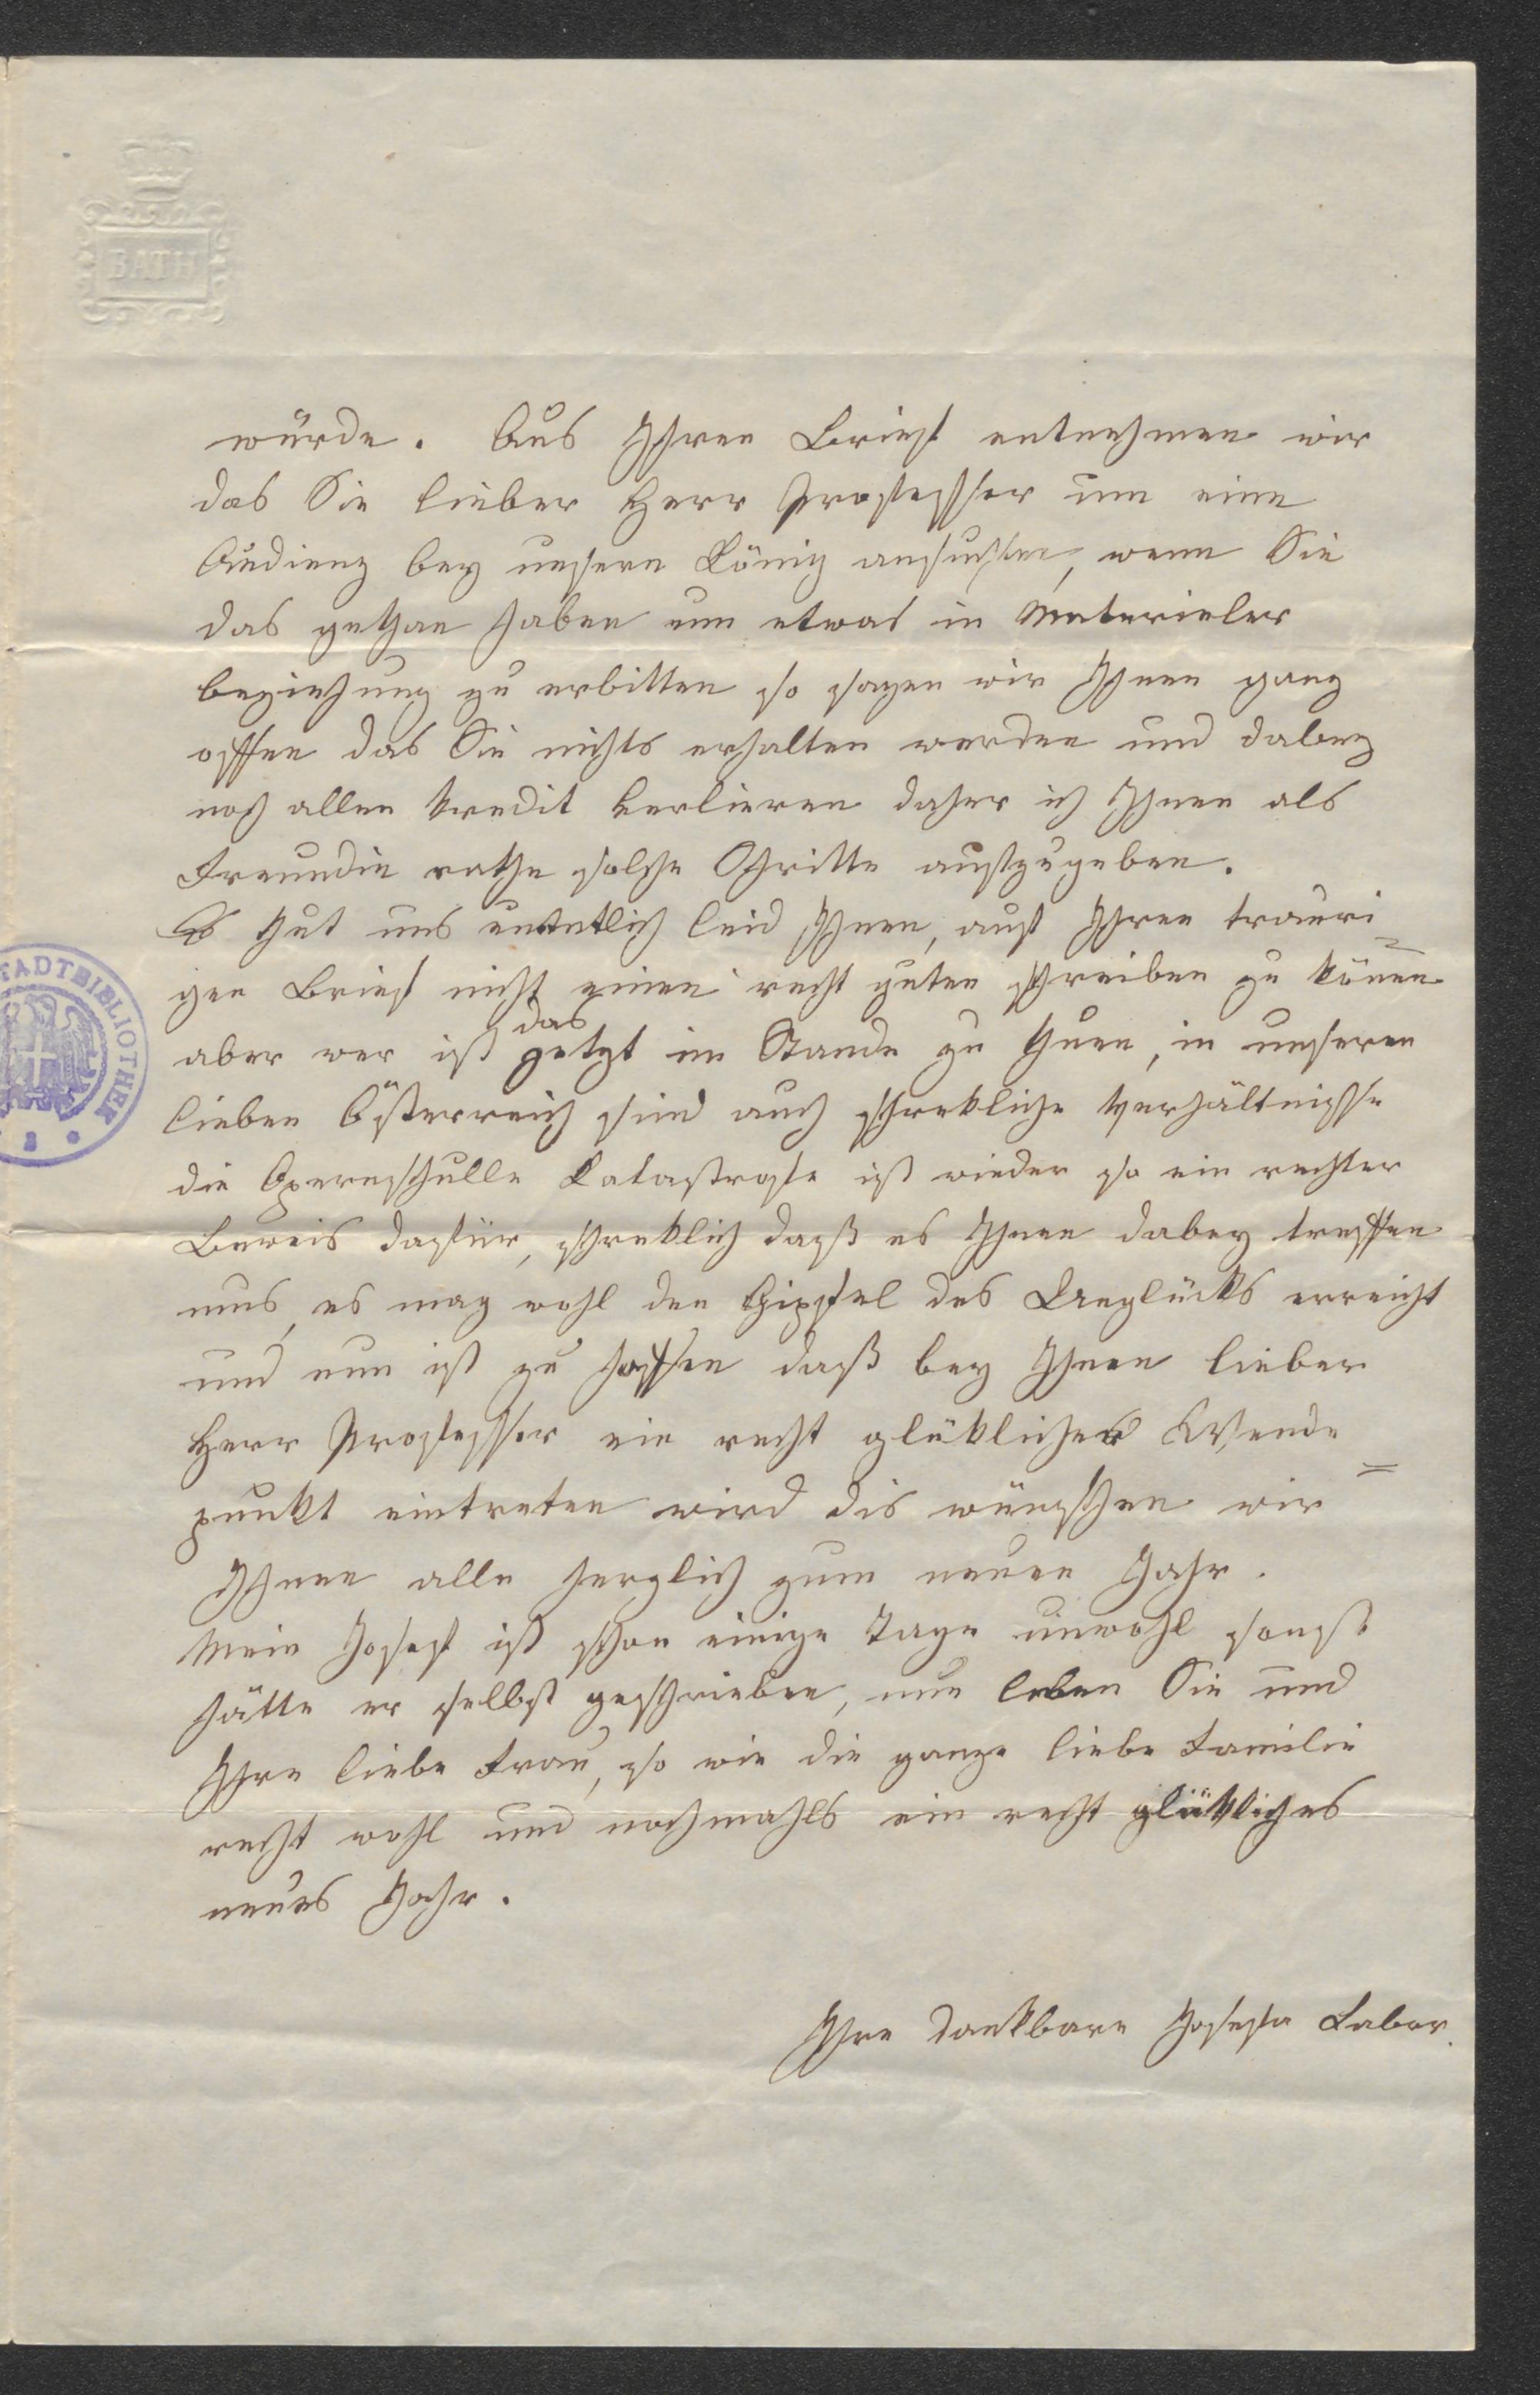 BATH
würde. Aus Ihren Brief entnehmen wir
das Sie lieber Herr Professor um eine
Audienz bey unsern König ansuchten, wenn Sie
das gethan haben um etwas in Materieler
beziehung zu erbitten so sagen wir Ihnen ganz
offen das Sie nichts erhalten werden und dabey
noch allen Kredit verlieren daher ich Ihnen als
Freundin rathe solche Schritte aufzugeben.
Es thut uns unentlich leid Ihnen, auf Ihren trauri=
gen Brief nicht einen recht guten schreiben zu können
das
aber wer ist jetzt im Stande zu thuen, in unseren
lieben Österreich sind auch schrekliche Verhältnisse
die Opernschulle Katastrofe ist wieder so ein rechter
Beweis dafür, schreklich daß es Ihnen dabey treffen
mus, es mag wohl den Gipfel des Unglücks erreicht
und nun ist zu hoffen daß bey Ihnen lieber
Herr Professor ein recht glüklicher Wende=
punkt eintreten wird dis wünschen wir
Ihnen alle herzlich zum neuen Jahr.
Mein Josef ist schon einige Tage unwohl sonst
hätte er selbst geschrieben, nun leben Sie und
Ihre liebe Frau, so wie die ganze liebe Familie
recht wohl und nochmahls ein recht glükliches
neues Jahr.
Ihre dankbare Josefa Labor.
STADTBIBLIOTHEK